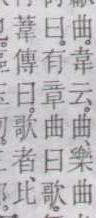 曲。韋云。曲、樂曲
曰。有章曲曰歌
葦傳曰。歌者、比